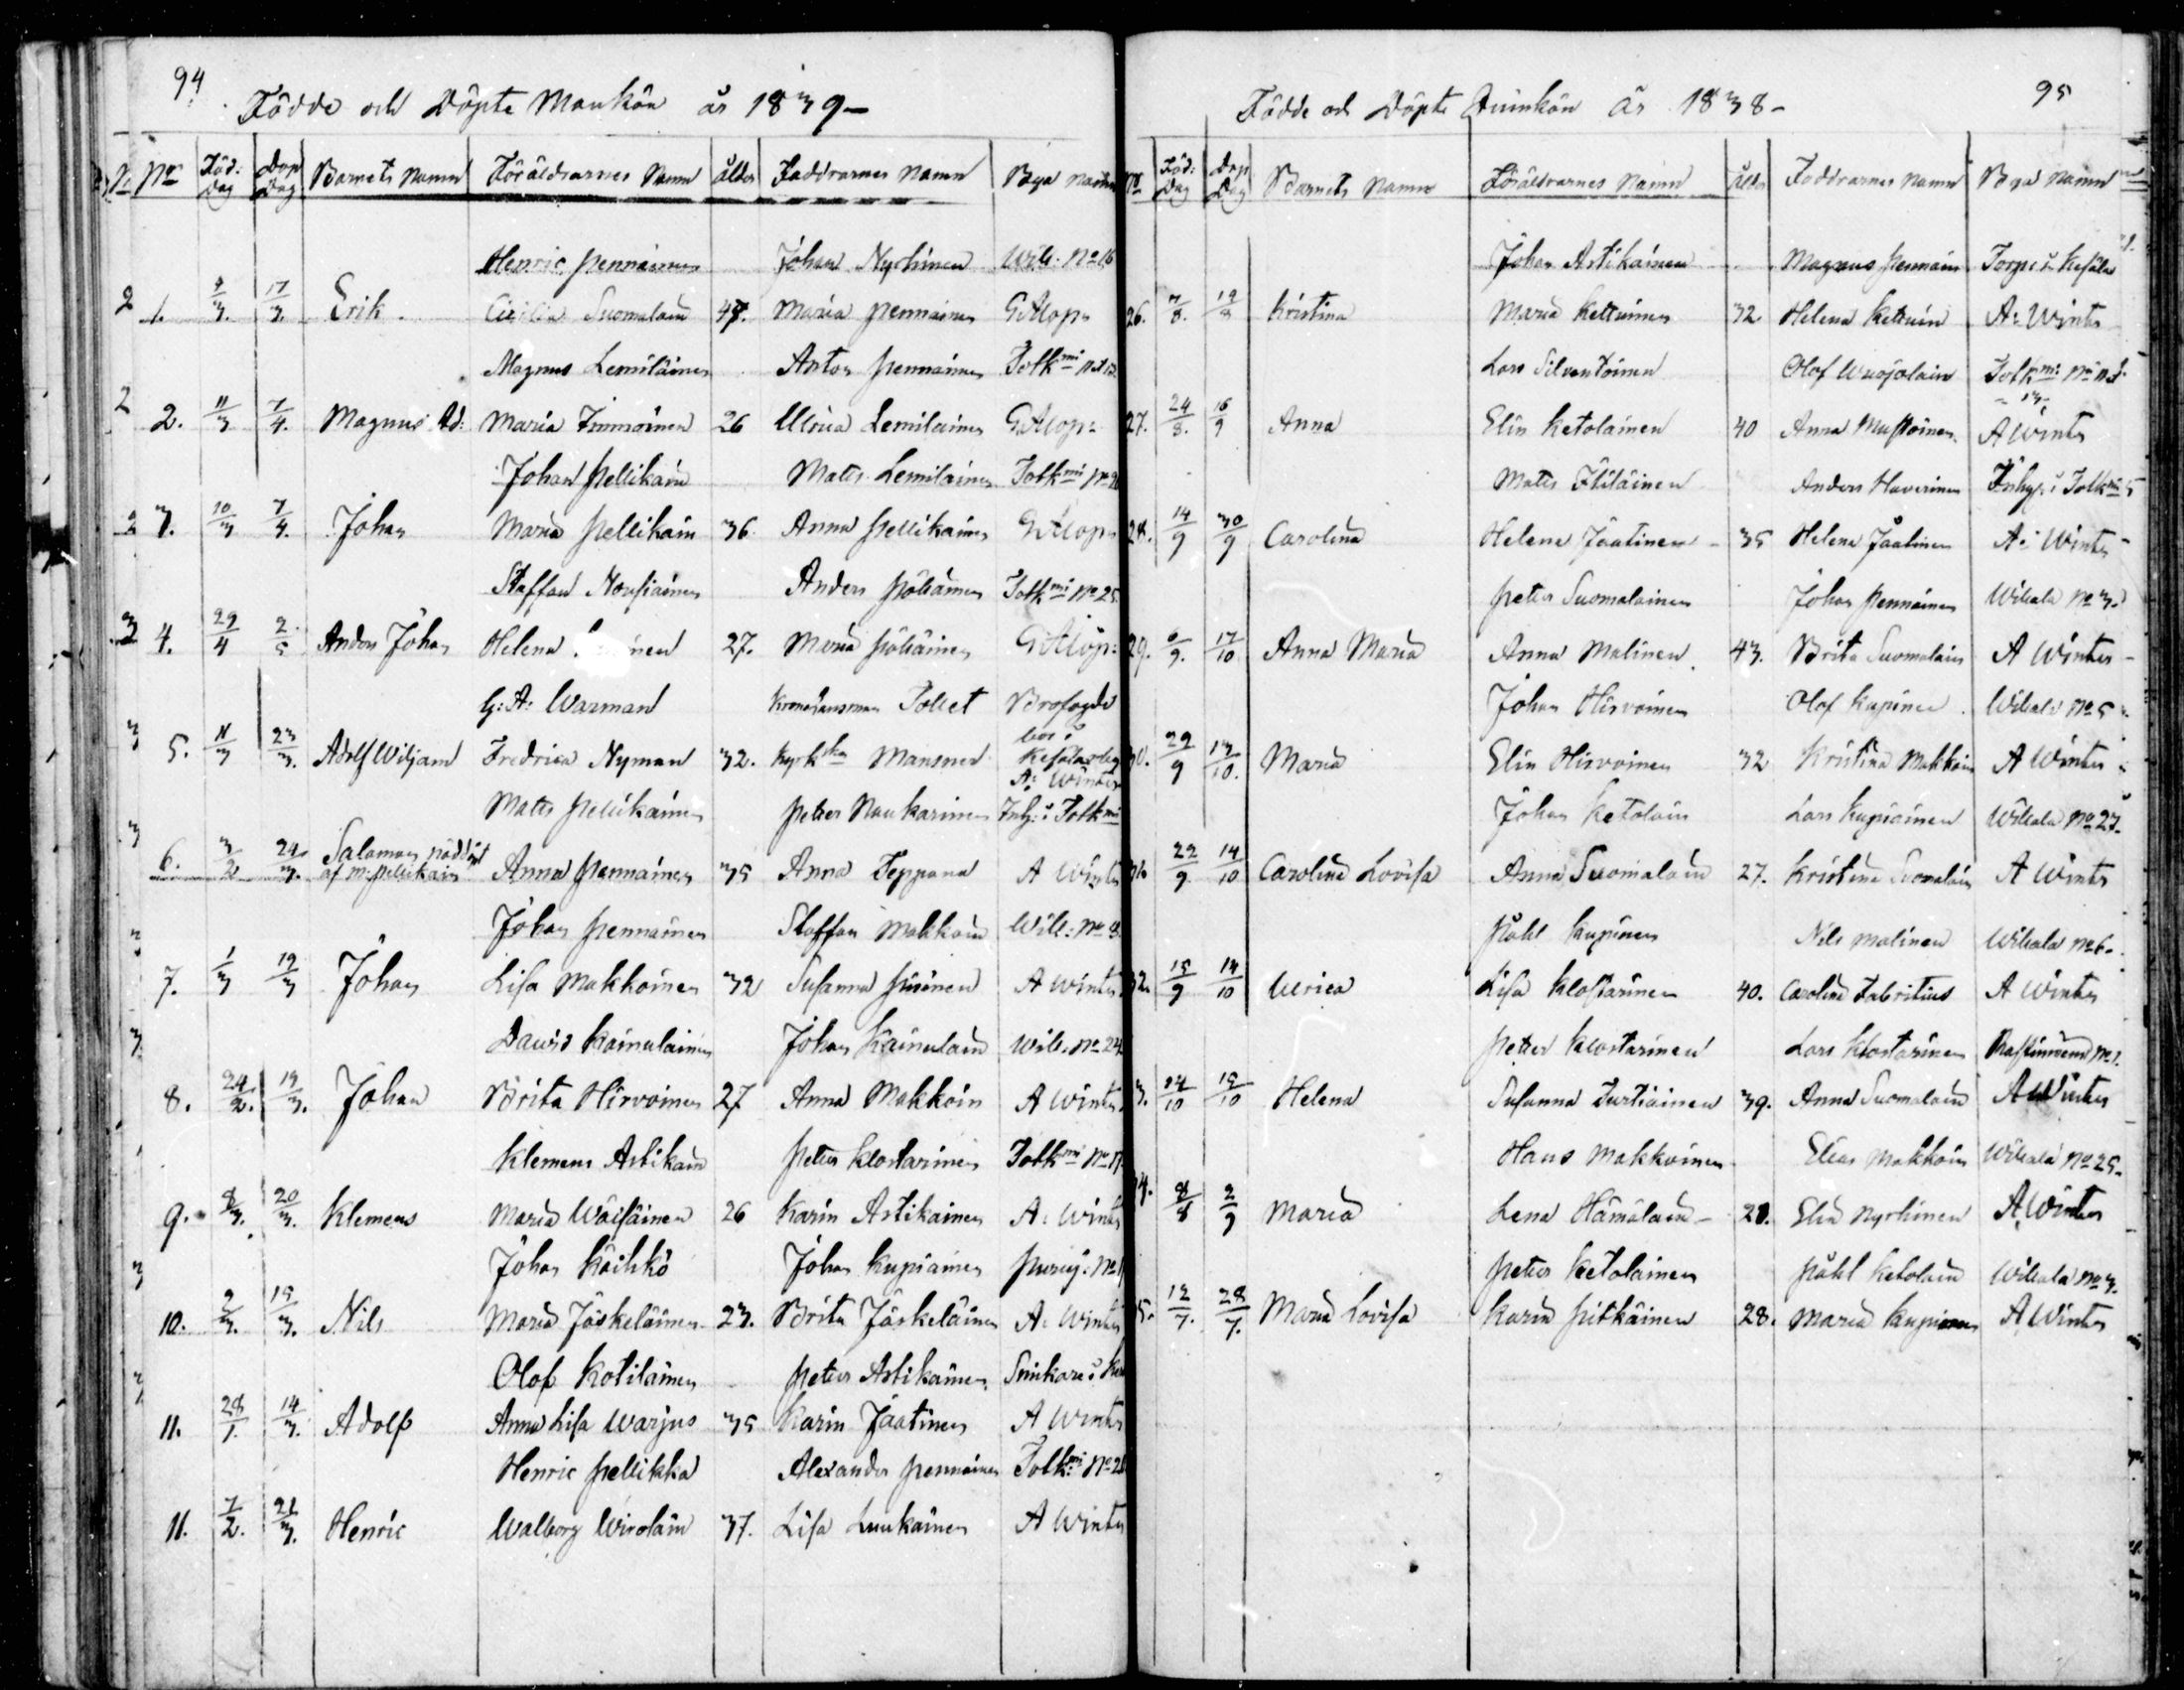 94
Födde och Döpte Mankön år 1839-
No Föd: Dag Dop Dag Barnets Namn Föräldrarnes Namn ålder Faddrarnes Namn Bya Namn
Henric Pennainen Johan Nyrhinen Will: No 16
1. 17/3. Erik Suomalain Maria Pennainen G Alop:
Magnus Lemiläinen Anton Pennainen Tolkmi
2. 11/3 7/4. Magnus Ad: Maria Immoinen 26 Ulrica Lemilainen G Alop:
Johan Pellikain Matts Lemilainen Tolkmi
3. 10/3 7/4. Johan Maria Pellikain 36. Anna Pellikainen G Alop:
Staffan Nousiainen Anders Pöliäinen Tolkmi No 25
4. 29/4 2/5 Anders Johan Helena 27. Maria Pöliäinen G Alop:
G: A: Warman Kronolänsman Tollet Brofogde
5. 11/3 23/3. Adolf Wiljam Fredrica Nyman 32. Mansner A: Winter
Matts Pellikainen Petter Naukarinen Inh: i Tolkmi
6. 3/2 24/3. Salamon nöddöpt af M: Pellikain Anna Pennainen 35 Anna Teppana A Winter
Johan Pennainen Staffan Makkoin Will: No
7. 1/3 19/3 Johan Lisa Makkoinen 32 Susanna Piironen A Winter
David Kainulainen Johan Kainulain Will: No 24
8. 24/2. 19/3. Johan Brita Hirvoinen 27 Anna Makkoin A Winter
Klemens Astikain Petter Klostarinen Tolkmi No
9. 8/3. 20/3. Klemens Maria Wäisäinen 26 Karin Astikainen A: Winter
Johan Käihkö Johan Kupiainen Puruj: No
10. 9/3. 15/3. Nils Maria Jäskeläinen 23. Brita Jäskeläinen A: Winter
Olof Kotilainen Petter Astikainen Snikare i
11. 28/1. 14/3. Adolf Anna Lisa Warjus 35 Karin Jäätinen A Winter
Henric Pellikka Alexander Pennainen Tolkmi No
11. 7/2. 21/3. Henric Walborg Wirolain 37. Lisa Luukainen A Winter
95
Födde och Döpte Quinkön år 1838-
No Föd: Dag Dop Dag Barnets Namn Föräldrarnes Namn ålder Faddrarnes Namn Bya Namn
Johan Astikainen Magnus Pennain Torp: i
26. 7/8. 19/8 Kristina Maria Kettuinen 32 Helena Kettuin A: Winter
Lars Silventoinen Olof Wuojolain Tolkmi
27. 24/8. 16/9 Anna Elin Ketolainen 40 Anna Mustoinen A Winter
Matts Ihiläinen Anders Haverinen Inhys i Tolkmi
28. 14/9 30/9 Carolina Helena Jäätinen 35 Helena Jäätinen A: Winter
Petter Suomalainen Johan Pennainen Wiliala No 3.
29. 6/9. 17/10 Anna Maria Anna Malinen 43. Brita Suomalain A Winter
Johan Hirvoinen Olof Kupinen Wiliala No 5
30. 29/9 13/10. Maria Elin Hirvoinen 32 Kristina Makkoin A Winter
Johan Ketolain Lars Kupiainen Wiliala No 27.
31. 22/9. 14/10 Carolina Lovisa Anna Suomalain 27. Kristina Suomalain A Winter
Påhl Kupinen Nils Malinen Wiliala No 6.
32. 15/9 14/10 Ulrica Lisa Klostarinen 40. Carolina Fabritius A Winter
Petter Klostarinen Lars Klostarinen
3. 14/10 15/10 Helena Susanna Turtiainen 39. Anna Suomalain A Winter
Hans Makkoinen Elias Makkoin Wiliala No 25.
4. 8/8 2/9 Maria Lena Hämälain Elin Nyrhinen A Winter
Petter Ketolainen Påhl Ketolain Wiliala No 3.
5. 12/7. 28/7. Maria Lovisa Karin Pitkäinen 28. Maria Kupiainen A Winter